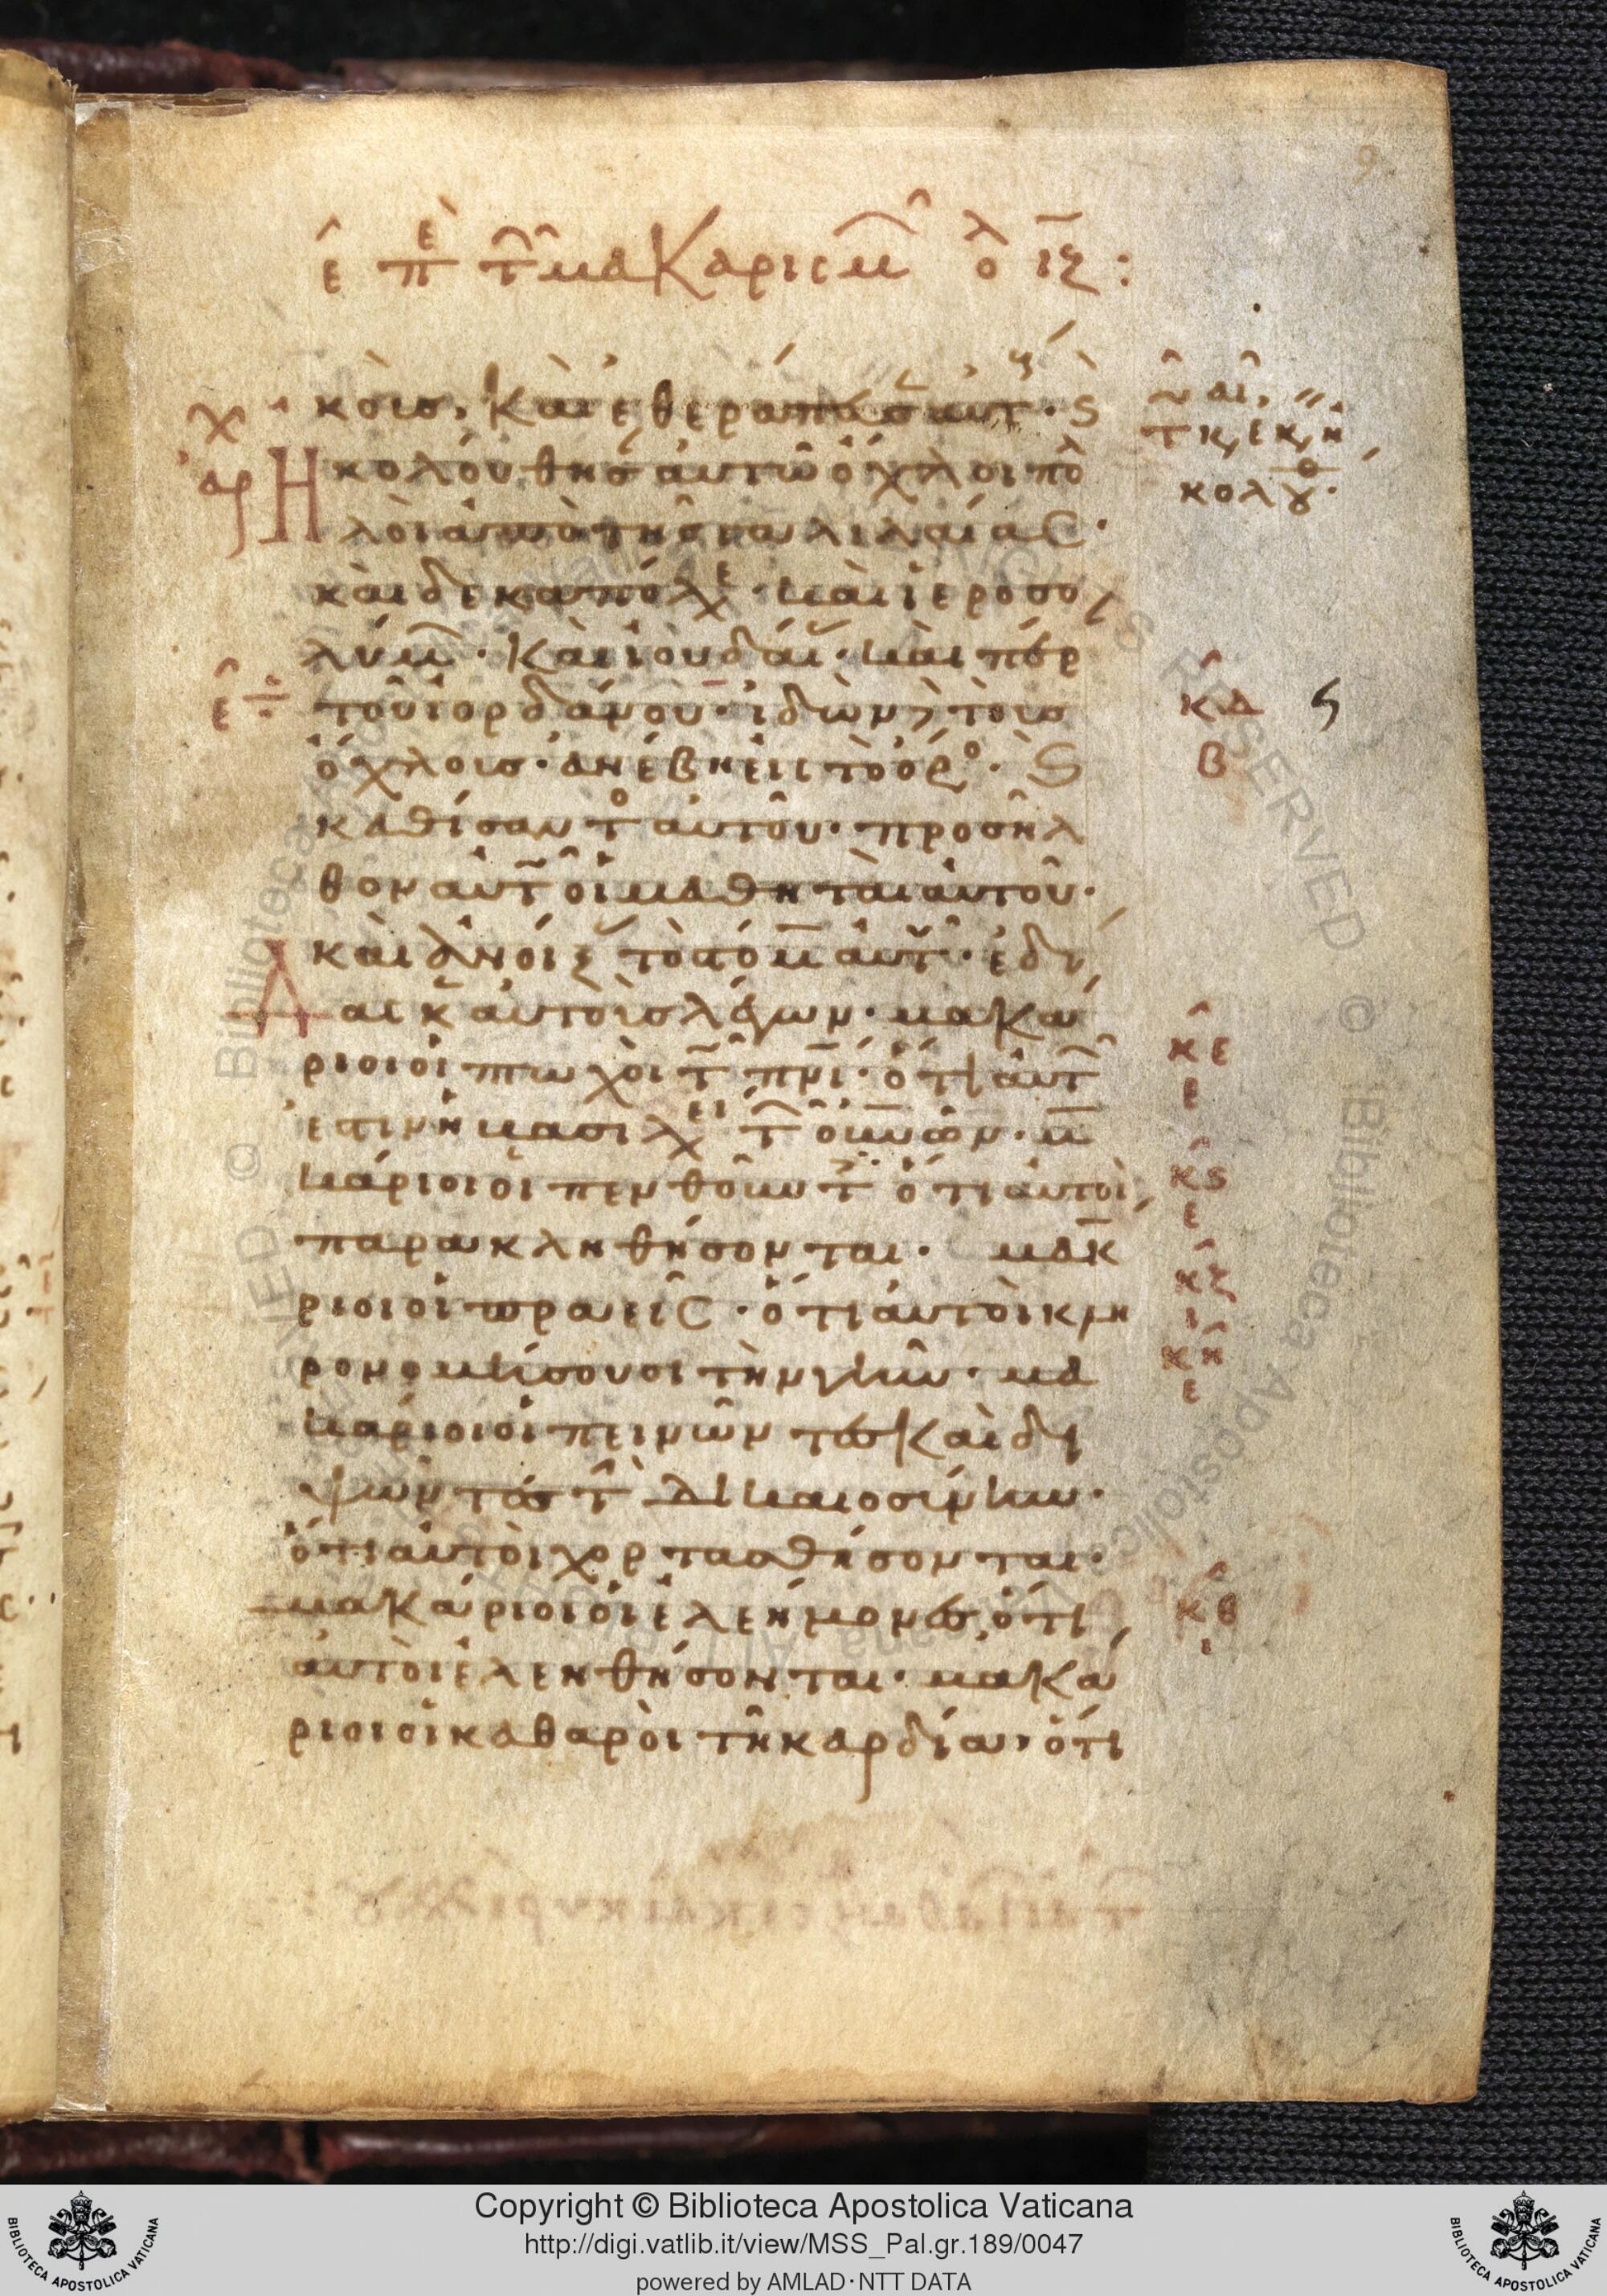 9
ε̑ πὲ τ̑ μακαρισμ̑ ολ ις :
κοὺσ, καὶ ἐθεράπευσεν αὐτ · ϛ
χ ἀρ Ηκολούθησάν αὐτῶ ὄχλοι πολ
λοὶ ἀπὸ τῆσ γαλιλαίας ·
καὶ δεκαπόλε · καὶ ἱεροσο
λύμ · καὶ ἰουδαί · καὶ πέρ
τοῦ ἰορδάνου · ἰδὼν δὲ τοὺσ
ὄχλουσ · ἀνέβη εἰς τὸ ὄρο · ϛ
καθίσαντο αὐτοῦ · προσῆλ
θον αὐτ οἱ μαθηταὶ αὐτοῦ ·
καὶ ἀνοίξ τὸ στόμ αὐτ · ἐδί
δασκ αὐτοὺσ λέγων · μακά
ριοι οἱ πτωχοὶ τ πνι · ὅτι αὐτ
ἐστιν ἡ βασιλει τ οὐνῶν · μ
κάριοι οἱ πενθοῦντ ὅτι αὐτοὶ
παρακληθήσονται · μακ
ριοι οἱ πραεῖς · ὅτι αὐτοὶ κλη
ρονομήσουσι τὴν γῆν · μα
κάριοι οἱ πεινῶντεσ καὶ δι
ψῶντεσ τ δικαιοσύνην ·
ὅτι αὐτοὶ χορτασθήσονται ·
μακάριοι οἱ ἐλεήμονεσ, ὅτι
αὐτοὶ ἐλεηθήσονται · μακά
ριοι οἱ καθαροὶ τῆ καρδία · ὅτι
κδ
β
κε
ε
κϛ
ε
κζ
ι
κη
ε
κθ
ι
Copyright © Biblioteca Apostolica Vaticana
http://digi.vatlib.it/view/MSS_Pal.gr.189/0047
powered by AMLAD·NTT DATA
BIBLIOTECA APOSTOLICA VATICANA
BIBLIOTECA APOSTOLICA VATICANA